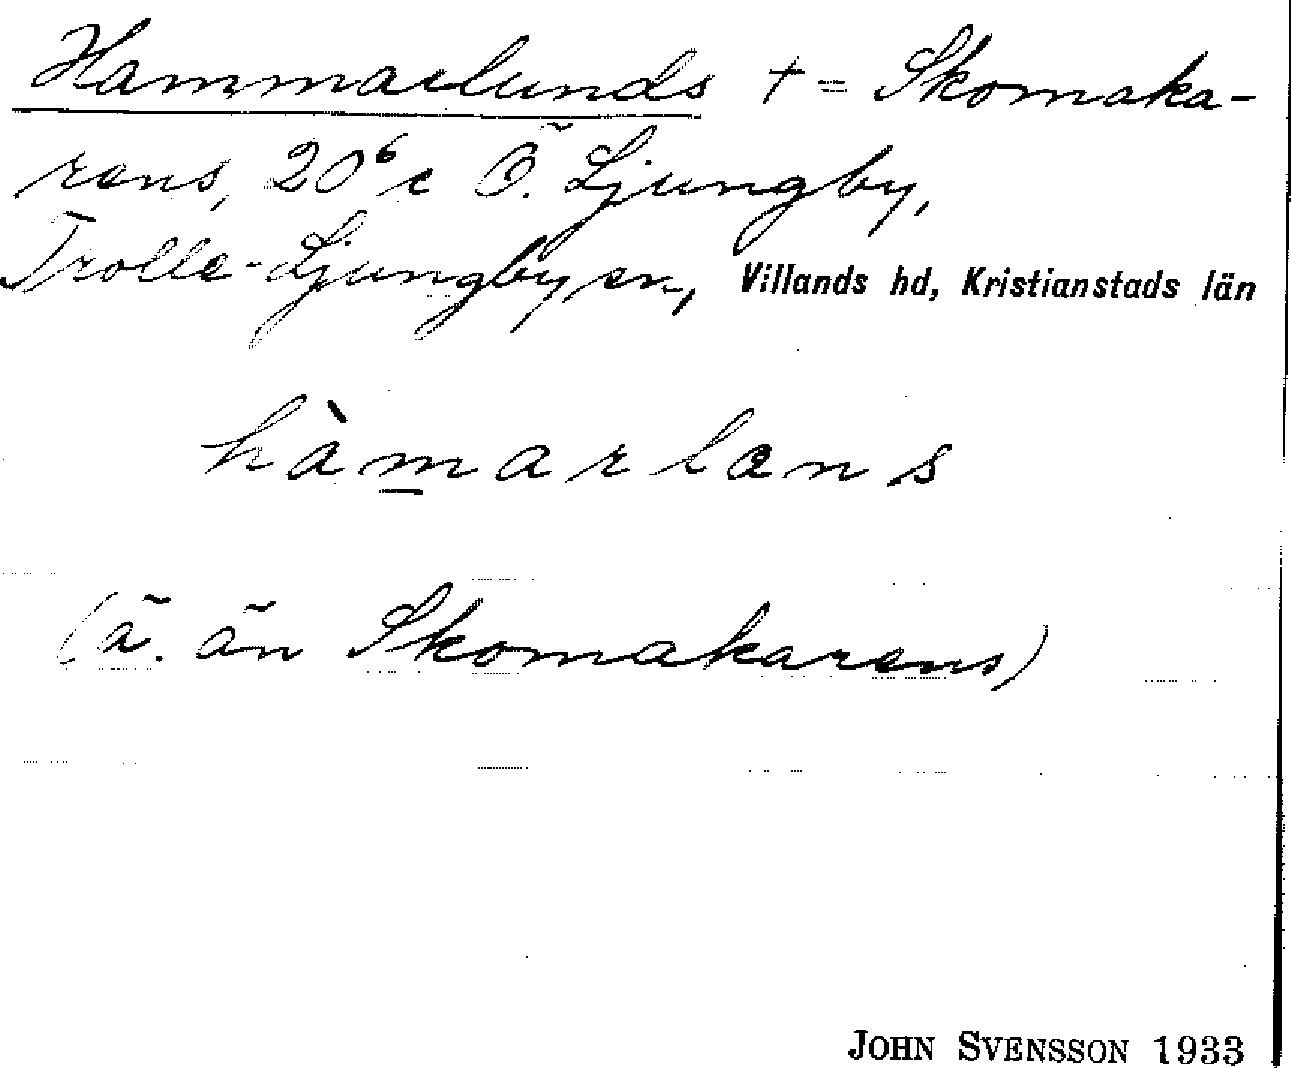 Hammarlunds + = Skomaka-
rens, 20⁶c Ö. Ljungby,
Trolle-Ljungby sn, Villands hd, Kristianstads län
hàmarlans
(ä. än Skomakarens)
JOHN SVENSSON 1933